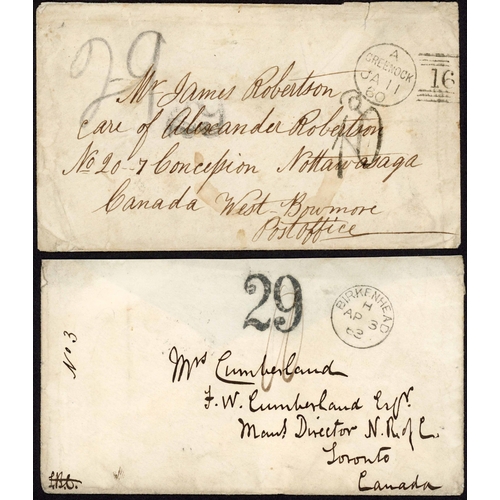 29
A
GREENOCK
JA 11
60
16
Mr James Robertson
care of Alexander Robertson
No 20-7 Concession Nottawasaga
Canada West-Bowmore
Postoffice
29
BIRKENHEAD
H
AP 3
62
No 3
Mrs Cumberland
F. W. Cumberland Esqr.
Mang Director N.R. of C.
Toronto
Canada